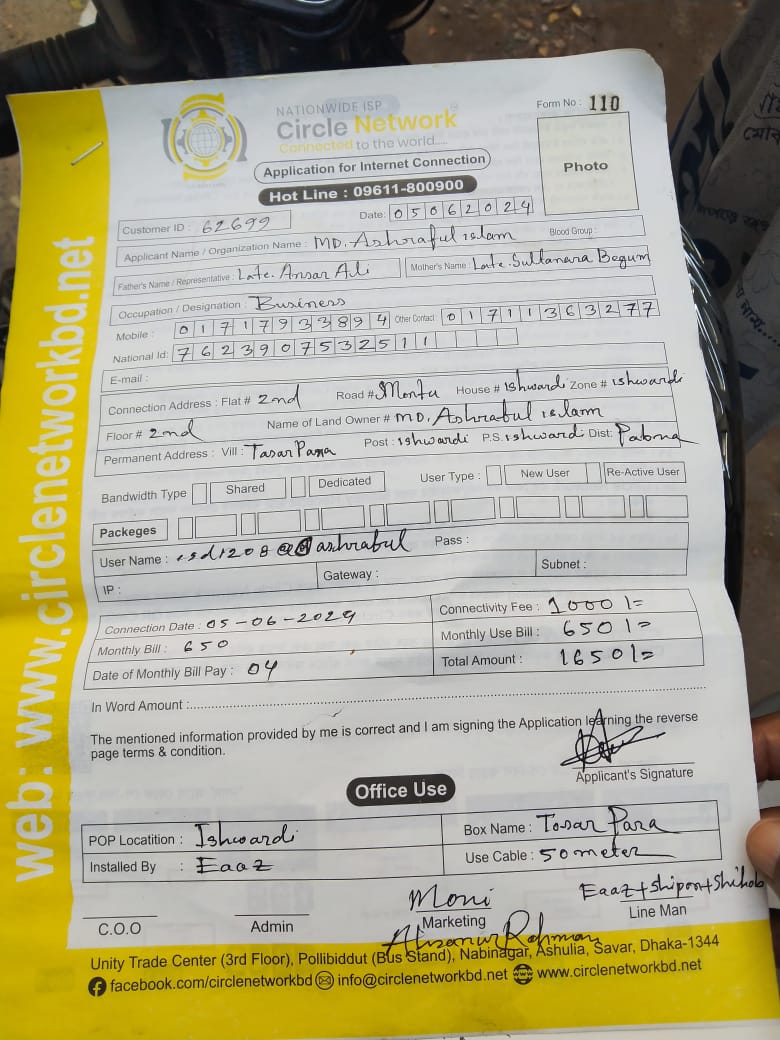 NATIONWIDE ISP
Circle Network
Connected to the world.....
Form No : 110
Application for Internet Connection
Hot Line : 09611-800900
Photo
Customer ID : 62699
Date: 05062024
Applicant Name / Organization Name : MD. Ashraful islam Blood Group :
Father's Name / Representative : Late. Ansar Ali Mother's Name : Late. Sultanara Begum
Occupation / Designation : Business
Mobile : 01717933894 Other Contact : 01711363277
National Id: 7623907532511
E-mail :
Connection Address : Flat # 2nd Road # Montu House # Ishwardi Zone # ishwardi
Floor # 2nd Name of Land Owner # MD. Ashraful islam
Permanent Address : Vill : Tasar Para Post : ishwardi P.S. ishwardi Dist: Pabna
Bandwidth Type Shared Dedicated User Type : New User Re-Active User
Packeges
User Name : isd1208@ashraful Pass :
IP : Gateway : Subnet :
Connection Date : 05-06-2024 Connectivity Fee : 1000/=
Monthly Bill : 650 Monthly Use Bill : 650/=
Date of Monthly Bill Pay : 04 Total Amount : 1650/=
In Word Amount :
The mentioned information provided by me is correct and I am signing the Application learning the reverse
page terms & condition.
Applicant's Signature
Office Use
POP Locatition : Ishwardi Box Name : Tosar Para
Installed By : Eaaz Use Cable : 50 meter
Moni Eaaz+Shipon+Shihab
C.O.O Admin Marketing Line Man
Ahsanur Rahman
Unity Trade Center (3rd Floor), Pollibiddut (Bus Stand), Nabinagar, Ashulia, Savar, Dhaka-1344
facebook.com/circlenetworkbd info@circlenetworkbd.net www.circlenetworkbd.net
web: www.circlenetworkbd.net